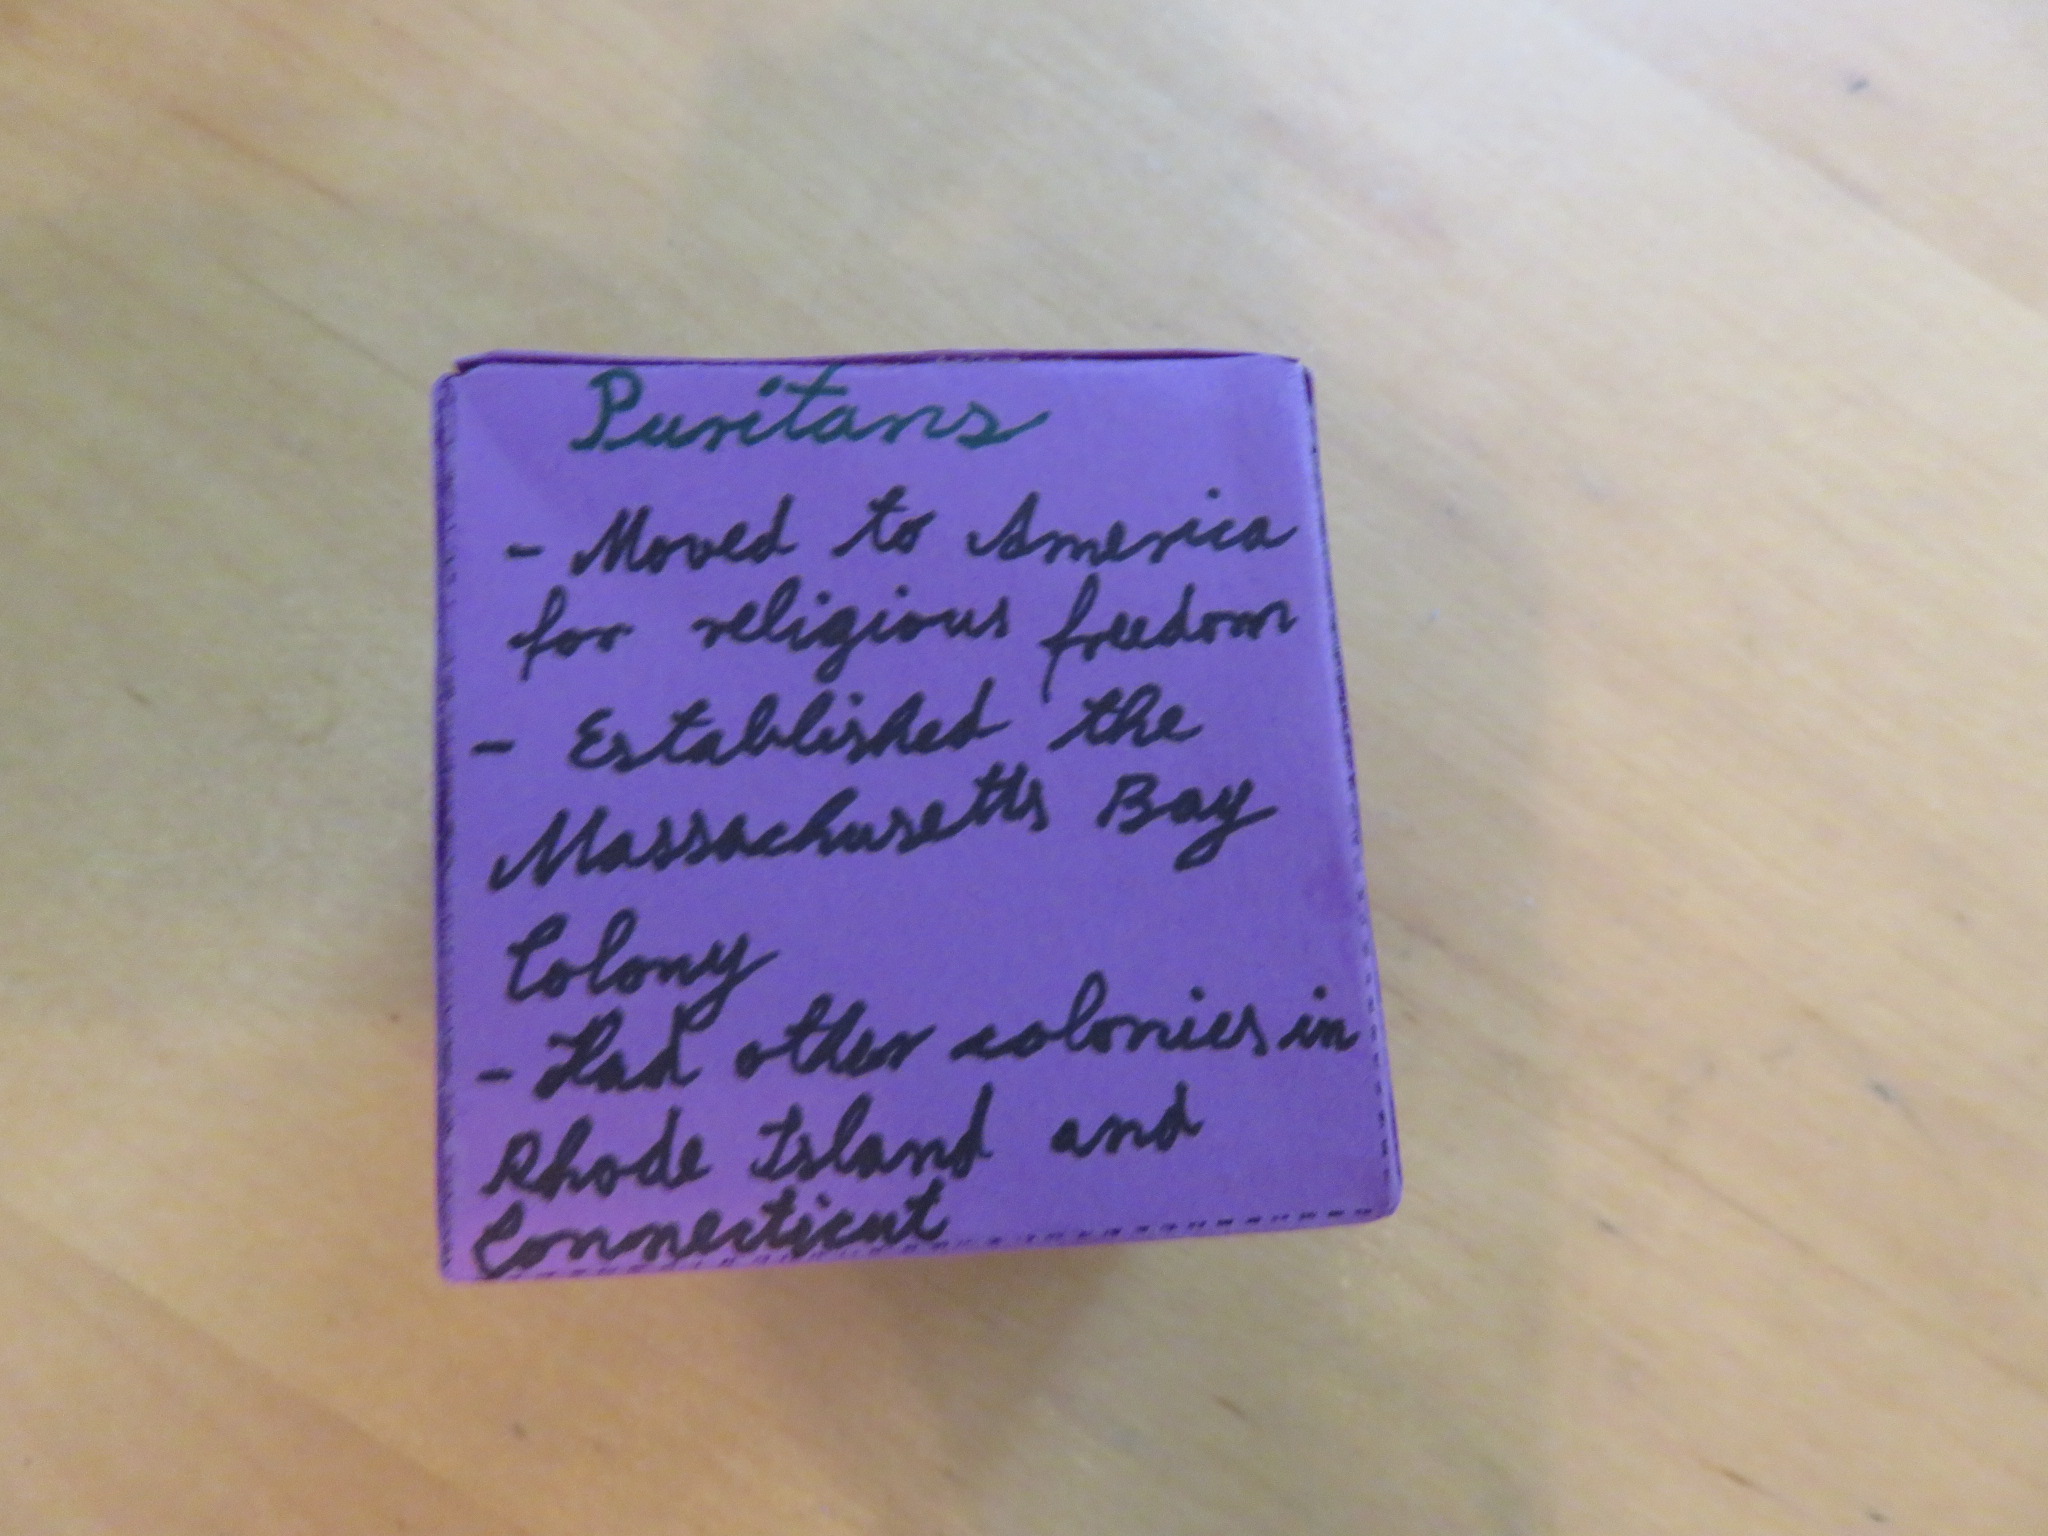 Puritans
- Moved to America
for religious freedom
- Established the
Massachusetts Bay
Colony
- Had other colonies in
Rhode Island and
Connecticut